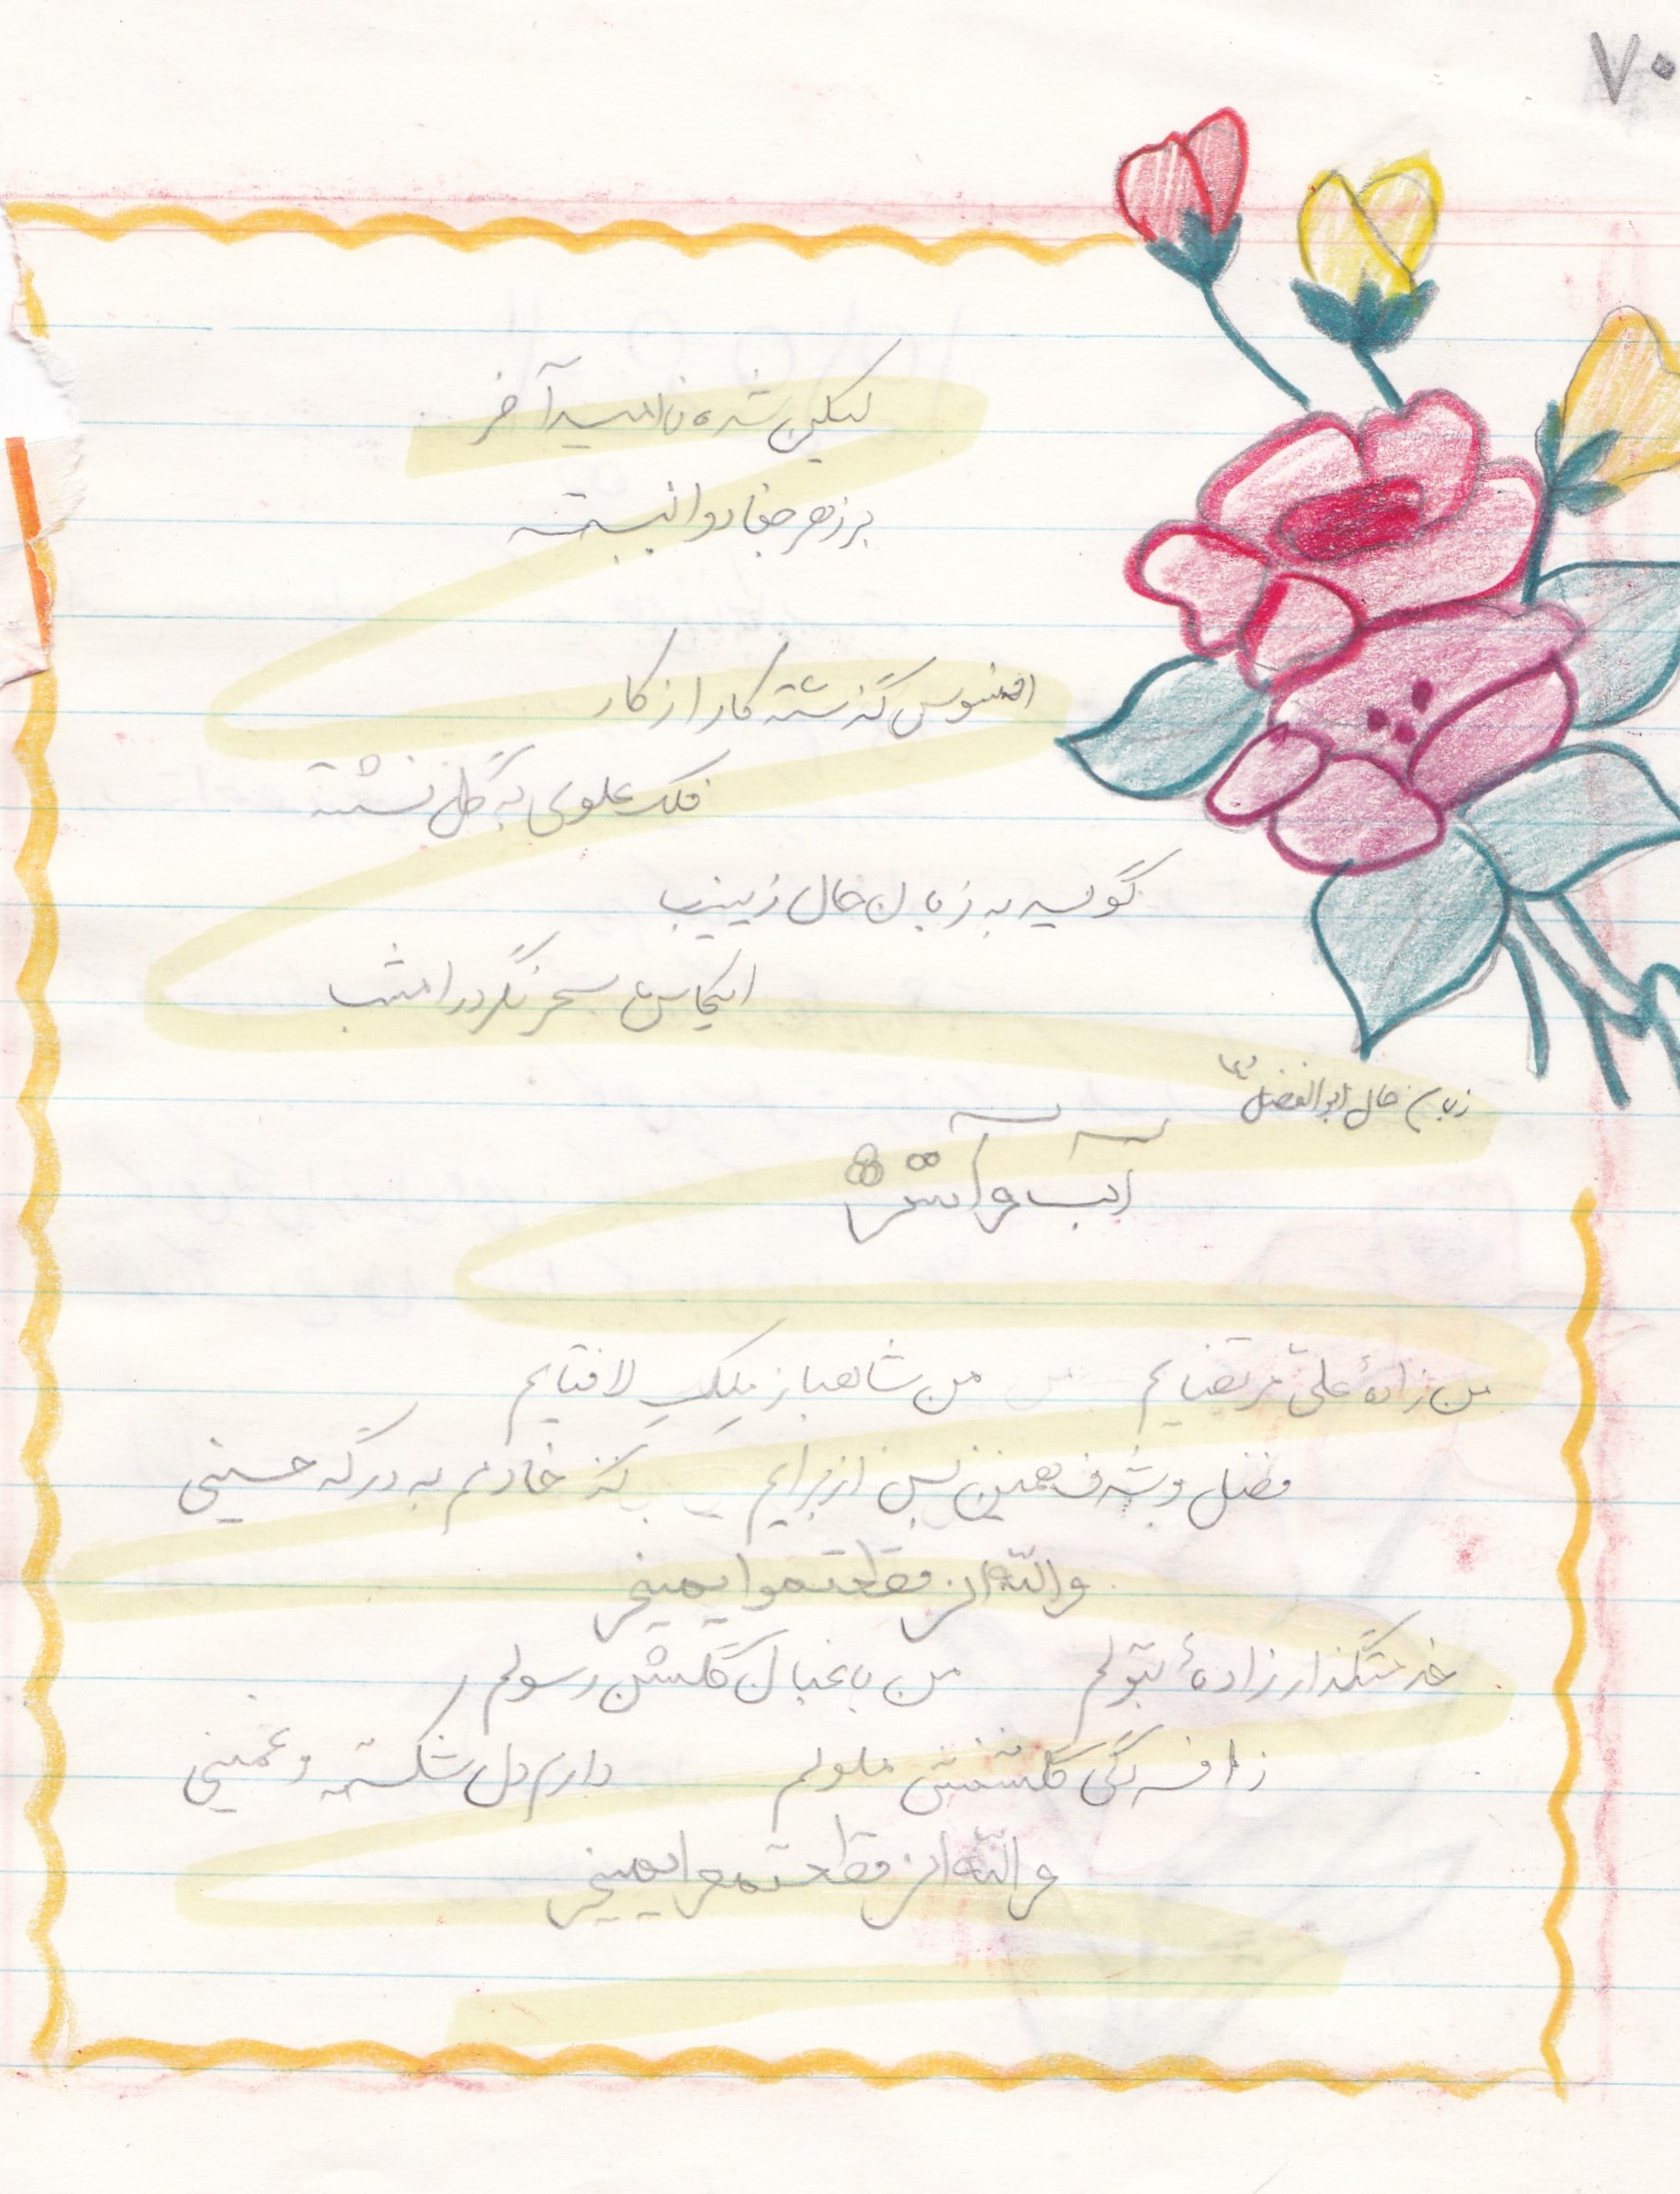 ۷۰
لیکن شده ناامید آخر
بر زهر جفا دوا نبسته
افسوس گذشته کار از کار
فلک علوی به گل نشسته
گوید به زبان حال زینب
ایکاش سحر نگردد امشب
زبان حال ابوالفضل (ع)
آب و آتش
من زادهٔ علی مرتضایم من شاهباز ملکِ لافتایم
فضل و شرف همین بس از برایم کز خادمم به درگه حسینی
واللّه ان قطعتموا یمینی
خدمتگذار زادهٔ بتولم من باغبان گلشن رسولم
ز افسردگی گلشنش ملولم دارم دل شکسته و غمینی
واللّه ان قطعتموا یمینی